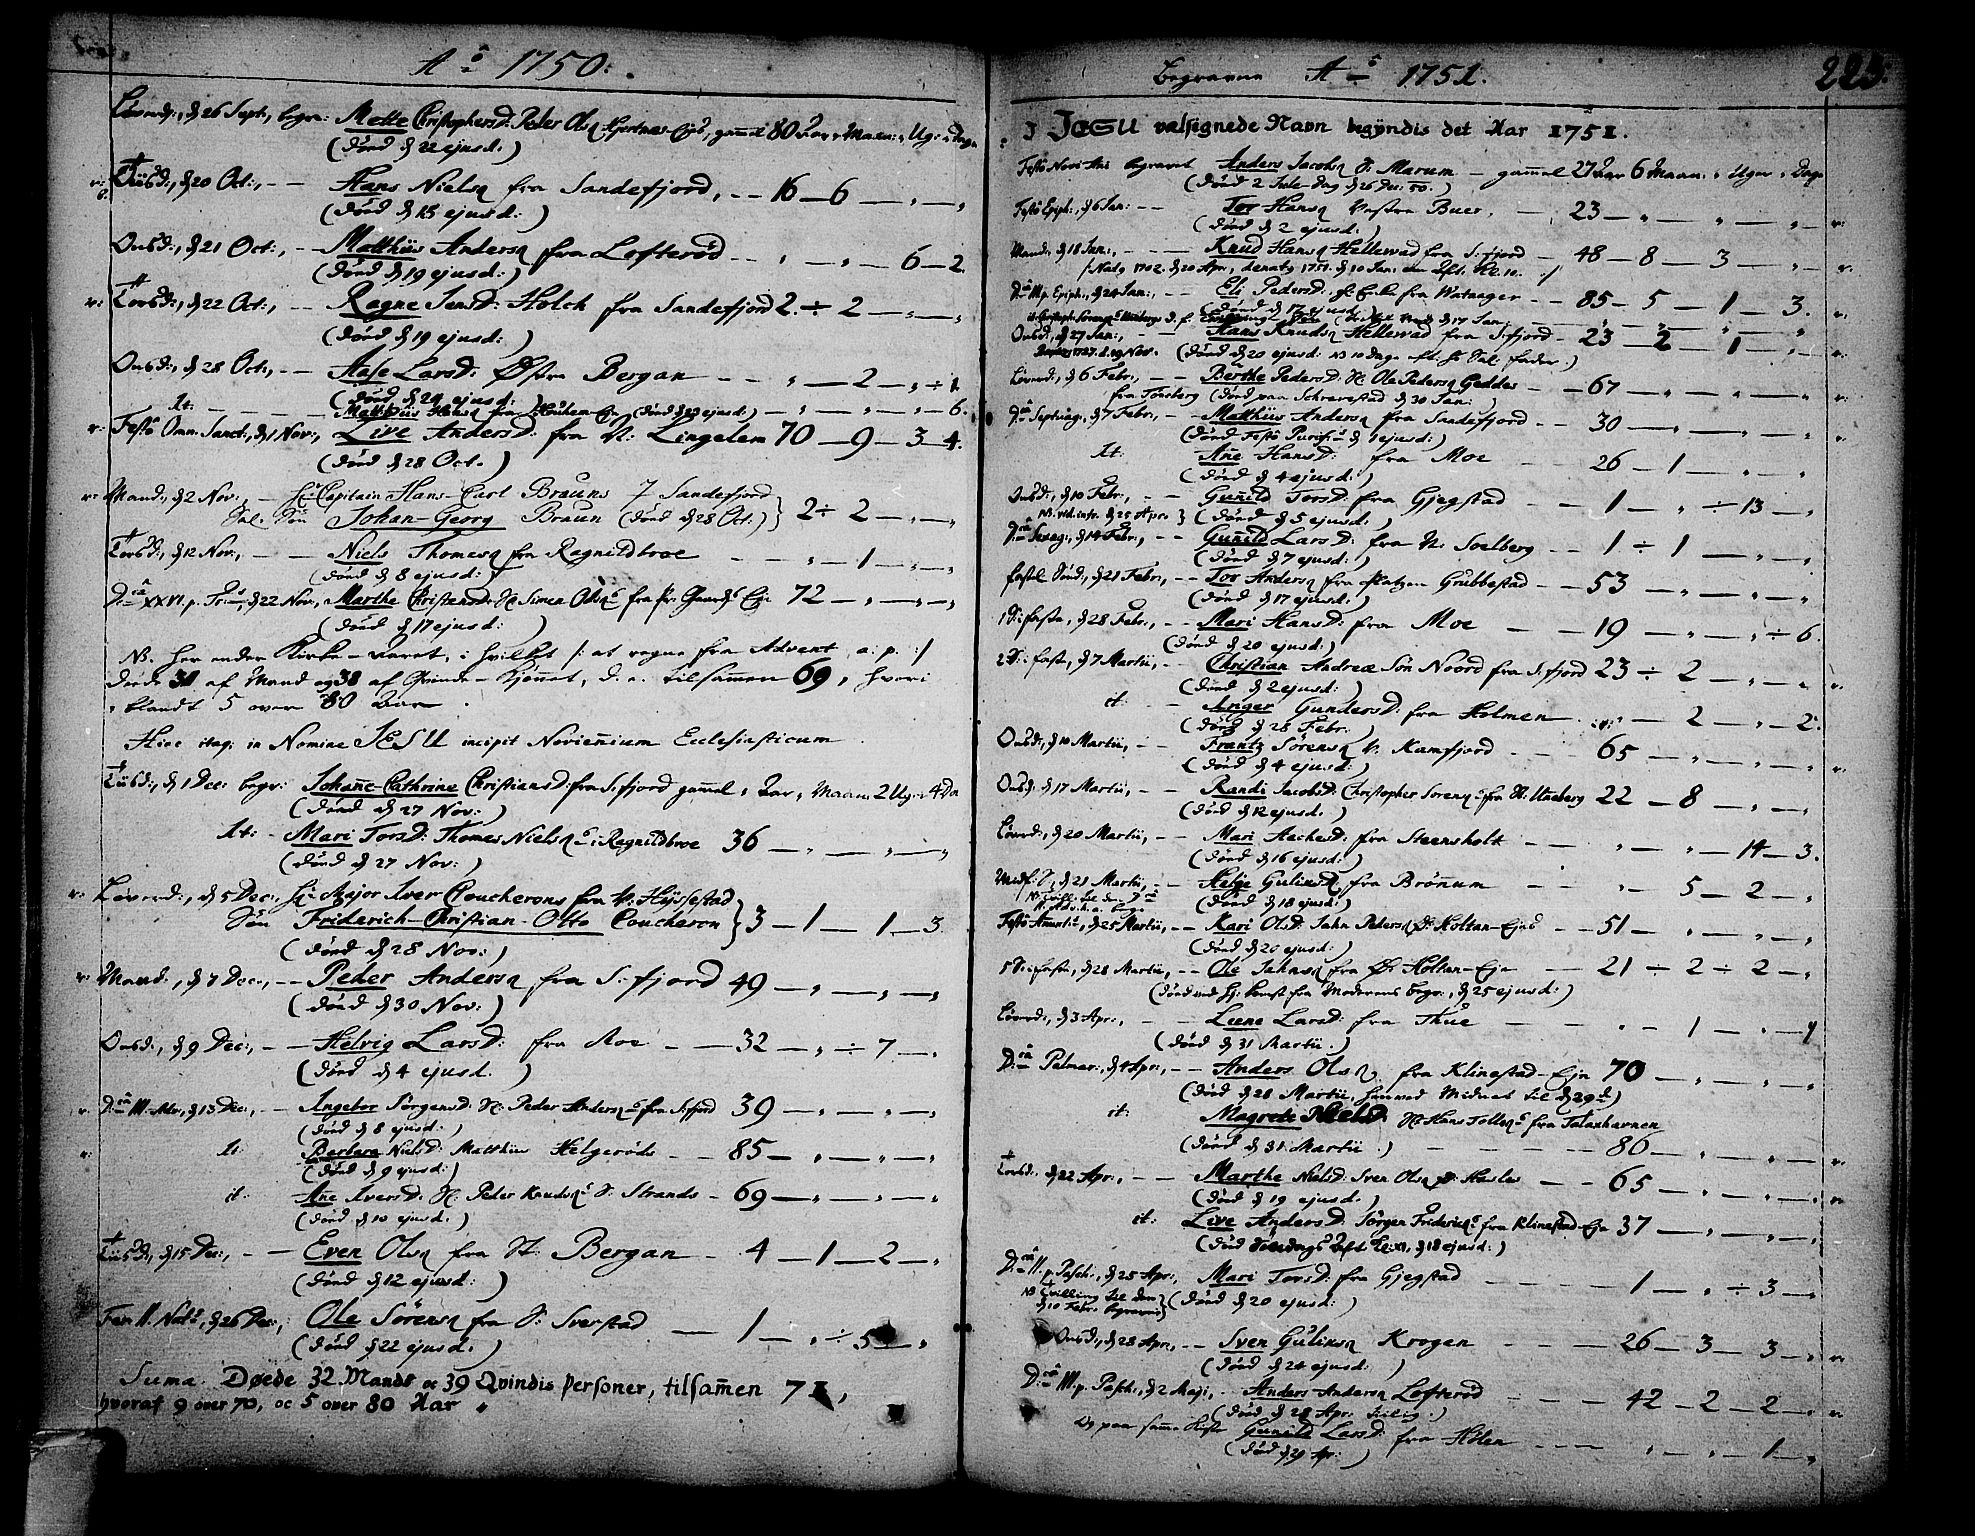 Aº 1750.
Løverd:, d 26 Sept, begr: Mette Christophersd: Peder Ols Hjertnes-Eje, gammel 80 Aar Maan: Ug: Dage
(død d 22 ejusd:)
Tiisd:, d 20 Oct:, Hans Niels fra Sandefjord, 16 — 6 — „ — „
(død d 15 ejusd:)
Onsd:, d 21 Oct:, — Matthiis Anders fra Lofterød — „ — „ — 6 — 2.
(død d 19 ejusd:)
v: Torsd:, d 22 Oct:, — Ragne Jensd: Holch fra Sandefjord 2. ÷ 2 — „ — „
(død d 19 ejusd:)
Onsd:, d 28 Oct:, — Aase Larsd: Østre Bergan — „ — 2 — „ ÷ 1.
(død d 24 ejusd:)
It: — Matthiis Hans fra (død d 23 ejusd:) — „ — „ — „ — 6.
v: Festo Omn. Sanct:, d 1 Nov:, Live Andersd: fra N: Lingelem 70 — 9 — 3 — 4.
(død d 28 Oct.)
v: Mand:, d 2 Nov:, — Hr Capitain Hans-Carl Brauns / Sandefjord
Sal. Søn Johan-Georg Braun (død d 28 Oct.) 2 ÷ 2 — „ — „
Torsd:, d 12 Nov:, — Niels Thomes fra Ragnildroe — „ — 1 — „ — „
(død d 8 ejusd:)
D:ca XXVI. p. Trin:, d 22 Nov, Marthe Christensd: H: Simen Ols fra Pr: Gaards Eje 72 — „ — „ — „
(død d 17 ejusd:)
NB. her ender Kirke-Aaret, i hvilket /: at regne fra Advent, a: p: :/
døde 31 af Mand og 38 af Qvinde-Kjønnet, d. e. tilsammen 69, hvori
blandt 5 over 80 Aar.
Hicc itaq; in Nomine JESU incipit Noviennium Ecclesiasticum.
Tiisd:, d 1 Dec: begr: Johane-Cathrine Christiansd: fra S:fjord gammel „ Aar „ Maan: 2 Ug: 4 Da
(død d 27 Nov:)
It: — Mari Torsd: Thomes Niels i Ragnildroe 36 — „ — „ — „
(død d 27 Nov:)
v: Løverd:, d 5 Dec:, Hr Major Iver Coucherons fra V: Hÿssestad
Søn Friderich-Christian-Otto Coucheron 3 — 1 — 1 — 3
(død d 28 Nov:)
v: Mand:, d 7 Dec:, — Peder Anders fra S:fjord 49 — „ — „ — „
(død d 30 Nov:)
Onsd:, d 9 Dec:, — Helvig Larsd: fra Roe — 32 — „ ÷ 7 — „
(død d 4 ejusd.)
v: D:ca III. Adv:, d 13 Dec:, — Ingebor Sørensd: H: Peder Anders fra S:fjord 39 — „ — „ — „
(død d 8 ejusd:)
v: It: Barbara Nielsd: Matthiis Helgerøds — 85 — „ — „ — „
(død d 9 ejusd:)
it: Ane Iversd: H: Peder Knuds S: Strands — 69 — „ — „ — „
(død d 10 ejusd.)
Tiisd:, d 15 Dec:, — Even Ols fra St: Bergan — 4 — 1 — 2 — „
(død d 12 ejusd:)
Fer: II. Nat:, d 26 Dec:, Ole Sørens fra S: Sverstad — 1 — „ ÷ 5 — „
(død d 22 ejusd:)
Suma. Døede 32 Mands oc 39 Qvindis Personer, tilsamen 71,
hvoraf 9 over 70, oc 5 over 80 Aar.
Begravne Aº 1751. 223.
I JESU velsignede Navn begÿndis det Aar 1751.
Festo Novi Ani begravet Anders Jacobs S: Marum — gammel 27 Aar 6 Maan: „ Uger „ Dage
(død 2 Jule-Dag d 26 Dec: 50.)
Festo Epiph:, d 6 Jan: — Tor Hans Vestre Buer. — 23 — „ — „ — „ v:
(død d 2 ejusd:)
Mand: d 18 Jan:, — Knud Hans Hellewad fra S:fjord — 48 — 8 — 3 — „ v:
/ Nat, 1702. d 20 Apr:, denat, 1751. d 10 Jan: om Aft. Kl. 10. /
D:ca III. p. Epiph:, d 24 Jan:, — Eli Pedersd: fra Wataager — 85 — 5 — 1 — 3. v:
Onsd:, d 27 Jan:, — Hans Knuds Hellewad fra S:fjord — 23 — 2 — 1 — „ v:
1727. d. 19 Nov. (død d 20 ejusd: NB 10 Dage eft: Sal. fader.)
Løverd:, d 6 Febr:, — Berthe Pedersd: H: Ole Peders Geddes — 67 — „ — „ — „ v:
fra Tønsberg (død paa Schravestad d 30 Jan:)
D:ca Septuag:, d 7 Febr:, — Matthiis Anders fra Sandefjord — 30 — „ — „ — „ v:
(død Festo Purif: d 1 ejusd:)
It: Ane Hansd: fra Moe — 26 — 1 — „ — „
(død d 4 ejusd:)
Onsd:, d 10 Febr:, — Gunild Torsd: fra Gjegstad — 1 — „ ÷ 13 — „
NB. vid. infr. d 25 Apr: (død d 5 ejusd.)
D:ca Sexag:, d 14 Febr:, — Gunild Larsd: fra N: Soelberg — 1 ÷ 1 — „ — „
(død d 7 ejusd:)
Fastel. Sønd:, d 21 Febr:, — Tor Anders fra Platzen Grubbestad — 53 — „ — „ — „
(død d 17 ejusd:)
1 S: i faste, d 28 Febr:, — Mari Hansd: fra Moe — 19 — „ — „ ÷ 6.
(død d 20 ejusd:)
2 S: i faste, d 7 Martii, — Christian Andreæ Søn Noord fra S:fjord 23 ÷ 2 — „ — „ v:
(død d 2 ejusd:)
it: — Anger Gundersd: fra Holmen — „ — 2 — „ — 2.
(død d 28 Febr:
Onsd:, d 10 Martii, — Frantz Sørens V: Kamfjord — 65 — „ — „ — „ v:
(død d 4 ejusd:)
Onsd: d 17 Martii, — Randi Jacobsd: Christopher Sørens fra N: Uneberg 22 — 8 — „ — „
(død d 12 ejusd:)
Løverd:, d 20 Martii, — Mari Aechesd: fra Steensholt — „ — „ — 14 — 3.
(død d 16 ejusd:)
Midf: S:, d 21 Martii, — Helje Guliksd fra Brønum — „ — 5 — 2 — „
(død d 18 ejusd:)
Festo Anunti:, d 25 Martii, — Kari Olsd: Jahn Peders Ø: Holtan-Ejes — 51 — „ — „ — „
(død d 20 ejusd:)
5 S: i faste, d 28 Martii, — Ole Jahns fra Ø: Holtan-Eje — 21 ÷ 2 ÷ 2 — „
(død ved Hj: komst fra Moderens begr:, d 25 ejusd:)
Løverd:, d 3 Apr:, — Leene Larsd: fra Thue — „ — 1 — „ — 4
(død d 31 Martii.)
D:ca Palmar:, d 4 Apr:, — Anders Ols fra Klinestad-Eje 70 — „ — „ — „
(død d 28 Martii, henved Midnat til d 29d)
it: Magrete Nielsd: H: Hans Tolles fra Talaxhavnen
(død d 31 Martii) — 86 — „ — „ — „ v:
Torsd: d 22 Apr:, — Marthe Nielsd: Sven Ols Ø: Hasles — 65 — „ — „ — „ v:
(død d 19 ejusd:)
it: Live Andersd: Jørgen Friderichs fra Klinestad-Eje 37 — „ — „ — „
(død Søndags Aft: Kl: XI, d 18 ejusd:)
D:ca II. p. Pasch:, d 25 Apr:, Mari Torsd: fra Gjegstad — 1 — „ ÷ 3 — „
NB tvilling til den
d 10 Febr: begravne (død d 20 ejusd:)
Onsd:, d 28 Apr:, — Sven Guliks Krogen — 26 — 3 — 3 — „ v:
(død d 24 ejusd:)
D:ca III. p. Pasch:, d 2 Maji, — Anders Anders Lofterød — 42 — 2 — 2 — „ v:
(død d 28 Apr: tiilig.)
Og paa samme Kiste Gunild Larsd: fra Hølen — „ — „ — 1 — „
(død d 29 Apr:)